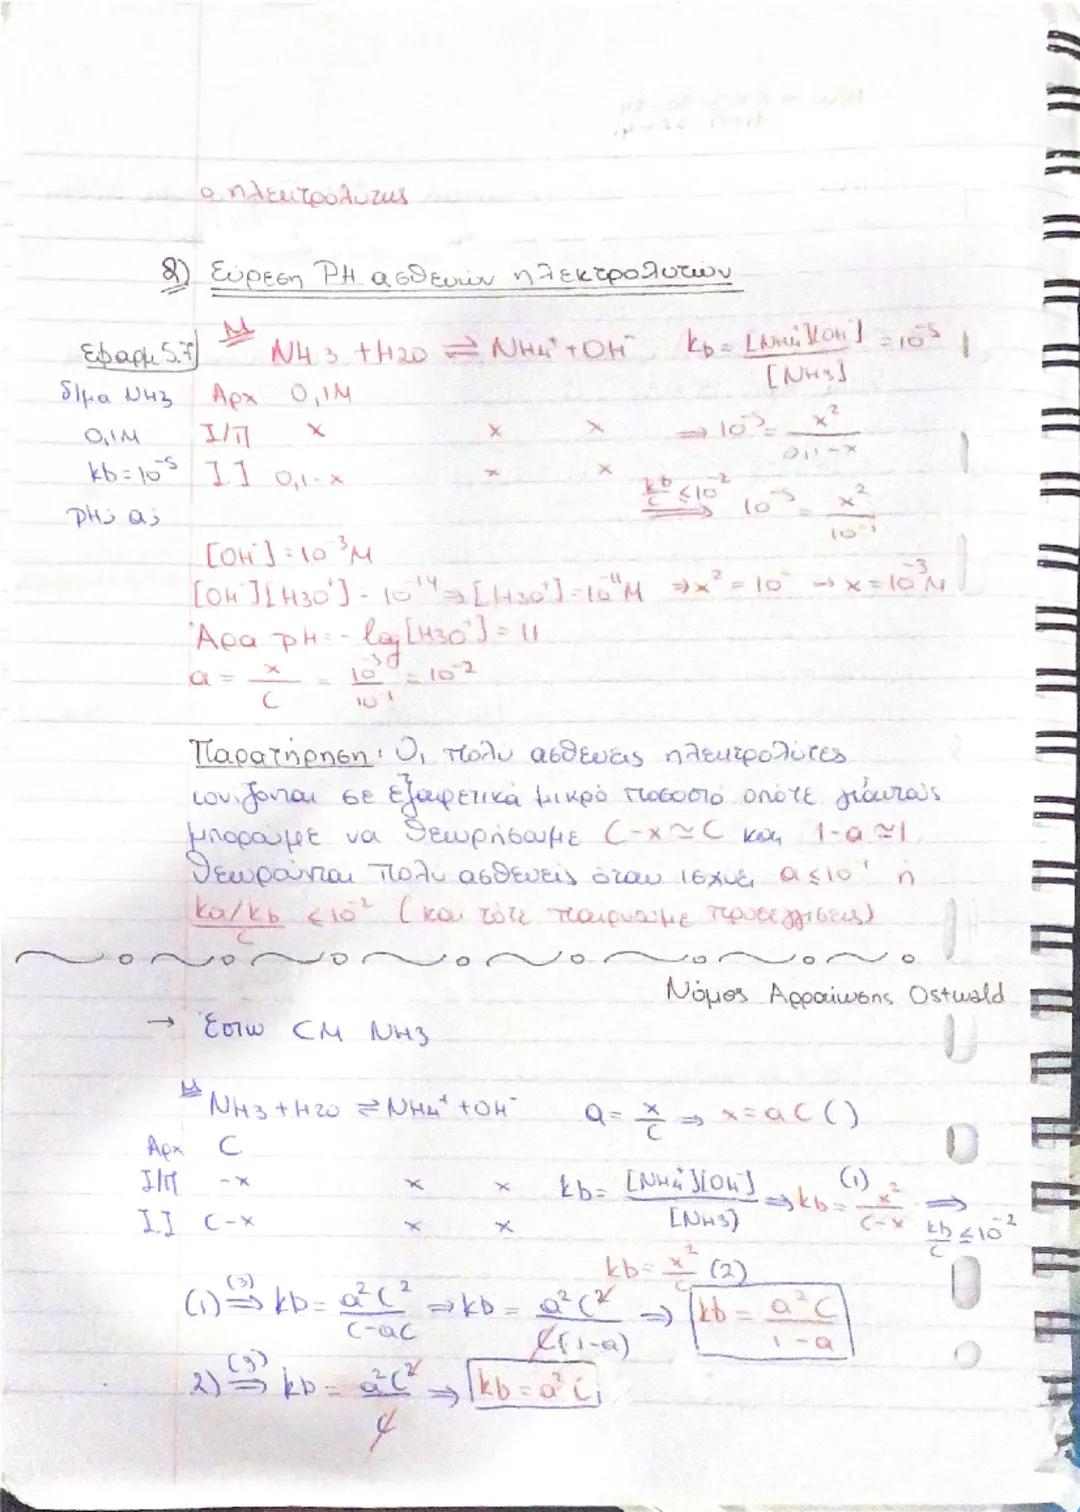 ο ηλεκτρολύτης
2) Εύρεση PH ασθενών ηλεκτρολυτών
Εφαρμ 5.7
M NH3 + H2O ⇌ NH4⁺ + OH⁻ kb = [NH4⁺][OH⁻] / [NH3] = 10⁻⁵
δ/μα NH3 Αρχ 0,1M
0,1M Ι/Π x x x ⇒ 10⁻⁵ = x² / 0,1-x
kb = 10⁻⁵ Ι.Ι 0,1-x x x
kb/c ≤ 10⁻² ⇒ 10⁻⁵ = x² / 10⁻¹
pH; α;
[OH⁻] = 10⁻³M
[OH⁻][H3O⁺] = 10⁻¹⁴ ⇒ [H3O⁺] = 10⁻¹¹M ⇒ x² = 10⁻ → x = 10⁻³M
Άρα pH = -log[H3O⁺] = 11
α = x/C = 10⁻³/10⁻¹ = 10⁻²
Παρατήρηση: Οι πολύ ασθενείς ηλεκτρολύτες
ιονίζονται σε εξαιρετικά μικρό ποσοστό οπότε γι'αυτούς
μπορούμε να θεωρήσουμε C-x≃C και 1-α≃1.
Θεωρούνται πολύ ασθενείς όταν ισχύει α≤10⁻¹ ή
ka/kb / C ≤10⁻² (και τότε παίρνουμε προσεγγίσεις)
Νόμος Αρραίωσης Ostwald
→ Έστω CM NH3
M NH3 + H2O ⇌ NH4⁺ + OH⁻ α = x/C ⇒ x = αC ()
Αρχ C
Ι/Π -x x x kb = [NH4⁺][OH⁻] / [NH3] ⇒ kb = x² / C-x (1) ⇒ kb/C ≤ 10⁻²
Ι.Ι C-x x x
kb = x²/C (2)
(1) (3)⇒ kb = α²C² / C-αC ⇒ kb = α²C² / C(1-α) ⇒ kb = α²C / 1-α
2) (3)⇒ kb = α²C² / C ⇒ kb = α²C